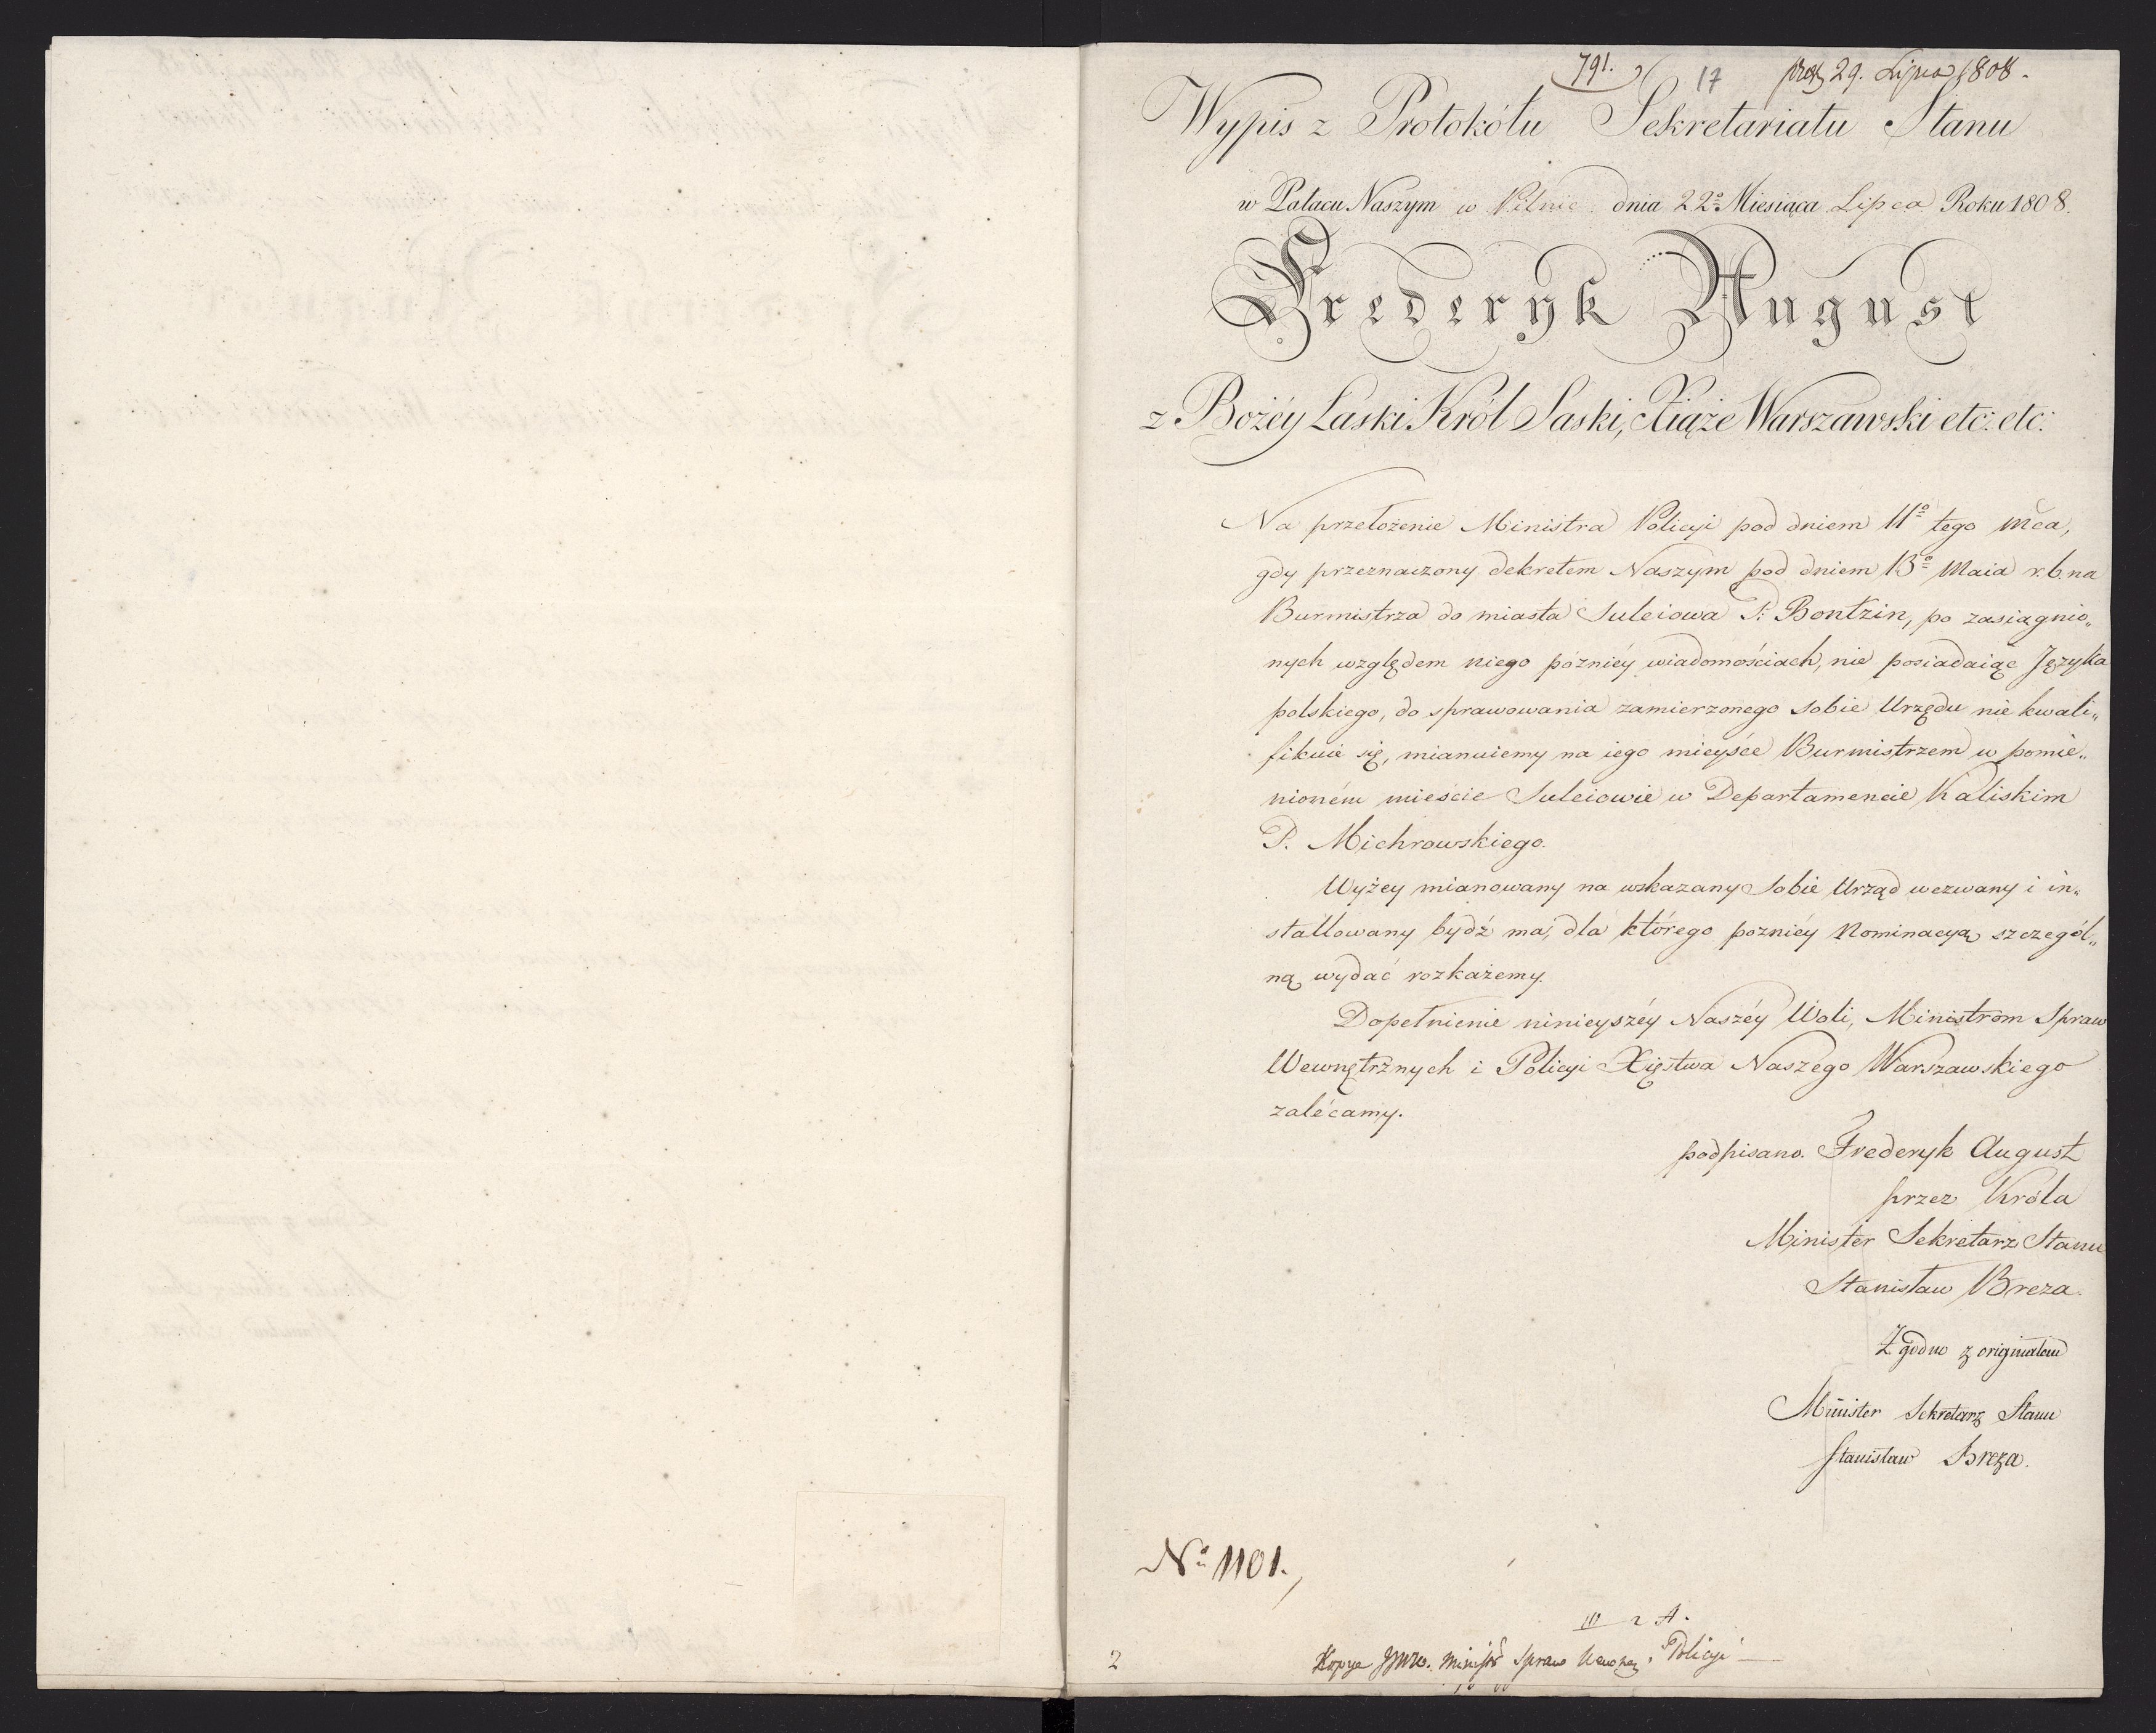 791. 17 29. Lipca 1808.
Wypis z Protokółu Sekretariatu Stanu
w Pałacu Naszym w Pilnic dnia 22º Miesiąca Lipca Roku 1808.
Frederyk August
z Bożéy Łaski Król Saski, Xiąże Warszawski etc: etc:
Na przełożenie Ministra Policyi pod dniem 11º tego mca,
gdy przeznaczony dekretem Naszym pod dniem 13º Maia r.b. na
Burmistrza do miasta Suleiowa P: Bontzin, po zasiągnio„
nych względem niego pózniéy wiadomościach, nie posiadaiąc Języka
polskiego, do sprawowania zamierzonego sobie Urzędu nie kwali„
fikuie się, mianuiemy na iego mieysce Burmistrzem w pomie„
nioném mieście Suleiowie w Departamencie Kaliskim
P. Michrowskiego.
Wyżey mianowany na wskazany sobie Urząd wezwany i in„
stallowany bydź ma, dla którego pozniéy Nominacyą szczegól„
ną wydać rozkażemy.
Dopełnienie ninieyszéy Naszéy Woli, Ministrom Spraw
Wewnętrznych i Policyi Xięstwa Naszego Warszawskiego
zalécamy.
podpisano. Frederyk August
przez Króla
Minister Sekretarz Stanu
Stanisław Breza.
Zgodno z originałem
Minister Sekretarz Stanu
Stanisław Breza.
Nº 1101.
2 A.
2 Kopya Ministr Spraw i Policyi